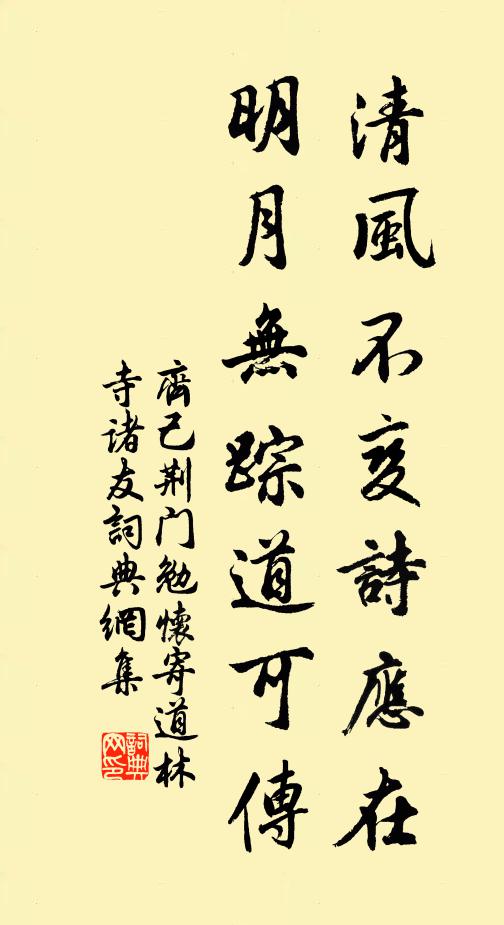 清風不变詩應在
明月無踪道可傳
齊己荆门勉懷寄道林
寺诸友詞典網集
詞典網印